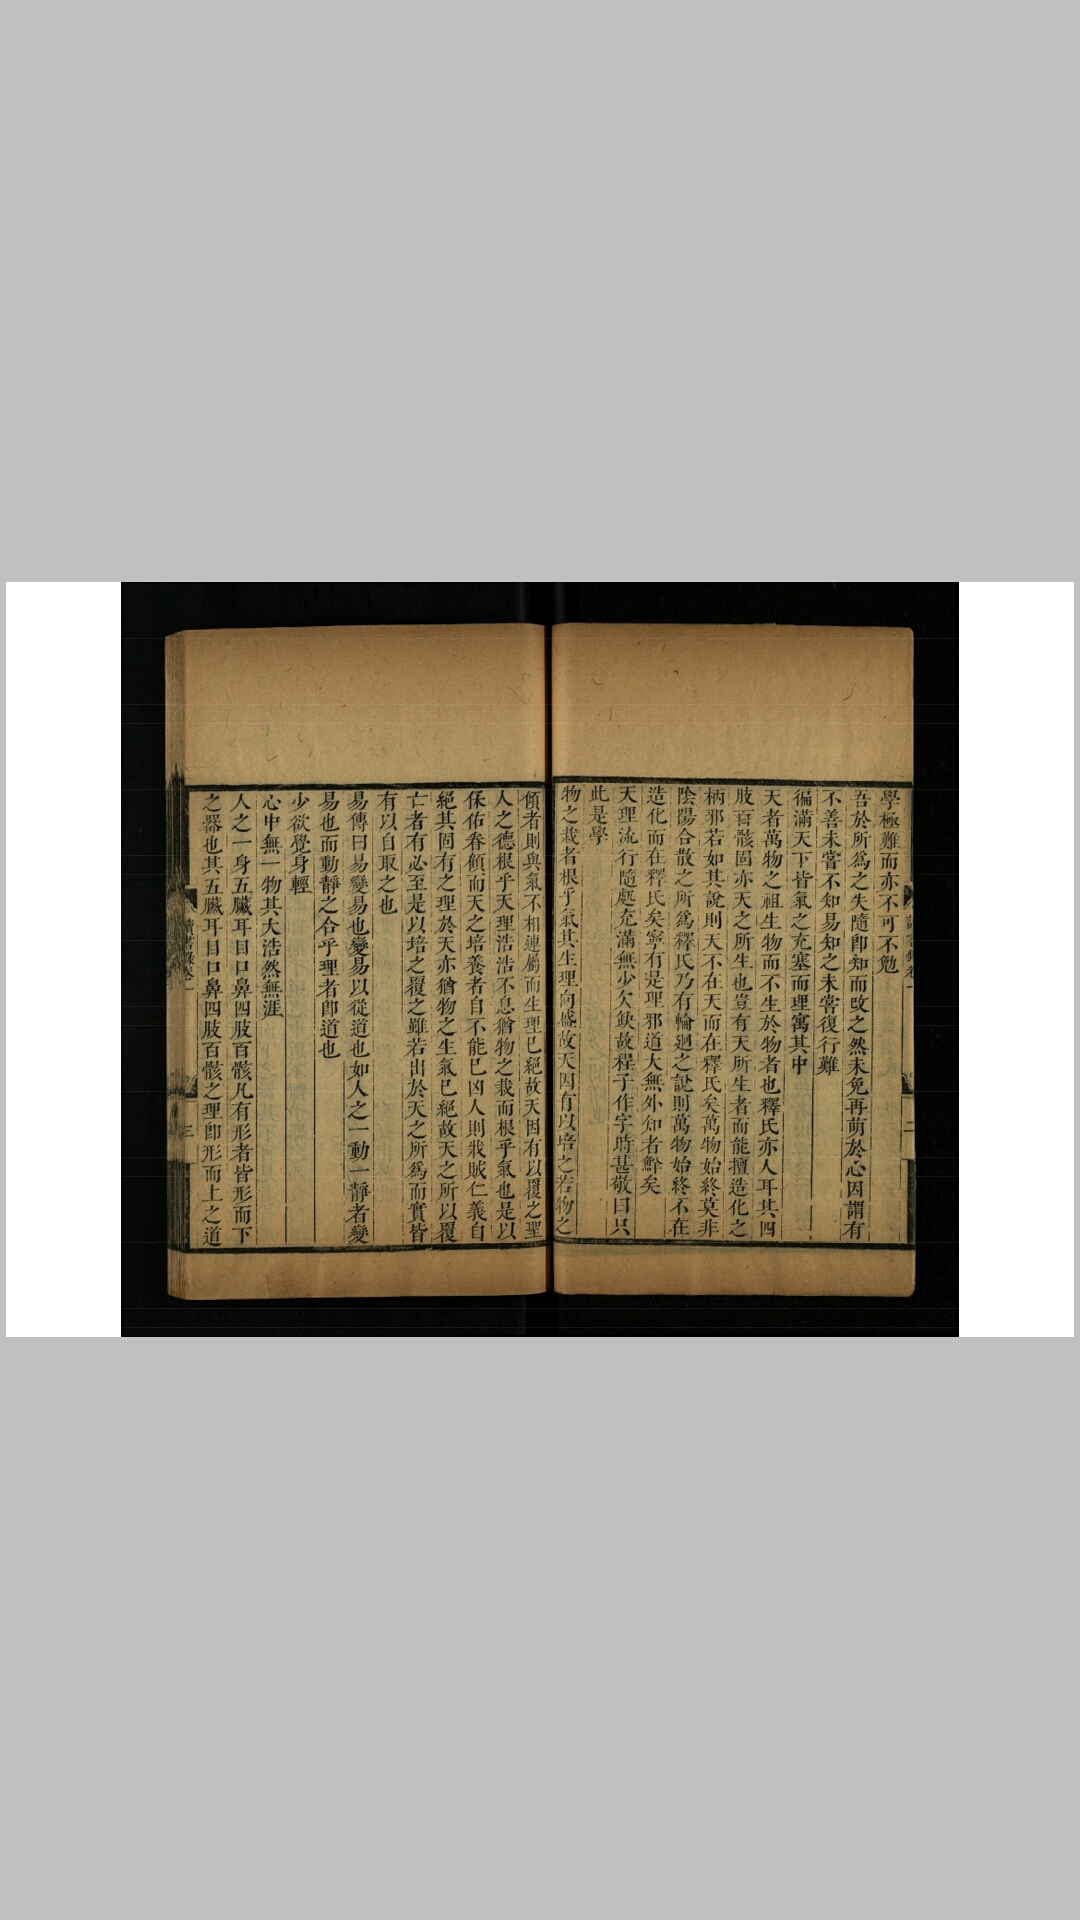 學極難而亦不可不勉
吾於所爲之失隨卽知而改之然未免再萌於心因謂有
不善未嘗不知易知之未嘗復行難
徧滿天下皆氣之充塞而理寓其中
天者萬物之祖生物而不生於物者也釋氏亦人耳其四
肢百骸固亦天之所生也豈有天所生者而能擅造化之
柄邪若如其說則天不在天而在釋氏矣萬物始終莫非
陰陽合散之所爲釋氏乃有輪迴之說則萬物始終不在
造化而在釋氏矣寧有是理邪道大無外知者鮮矣
天理流行隨處充滿無少欠缺故程子作字時甚敬曰只
此是學
物之栽者根乎氣其生理向盛故天因有以培之若物之
傾者則與氣不相連屬而生理已絕故天因有以覆之聖
人之德根乎天理浩浩不息猶物之栽而根乎氣也是以
保佑眷顧而天之培養者自不能已凶人則戕賊仁義自
絕其固有之理於天亦猶物之生氣已絕故天之所以覆
亡者有必至是以培之覆之雖若出於天之所爲而實皆
有以自取之也
易傳曰易變易也變易以從道也如人之一動一靜者變
易也而動靜之合乎理者卽道也
少欲覺身輕
心中無一物其大浩然無涯
人之一身五臟耳目口鼻四肢百骸凡有形者皆形而下
之器也其五臟耳目口鼻四肢百骸之理卽形而上之道
讀書錄卷一
二
讀書錄卷一
三